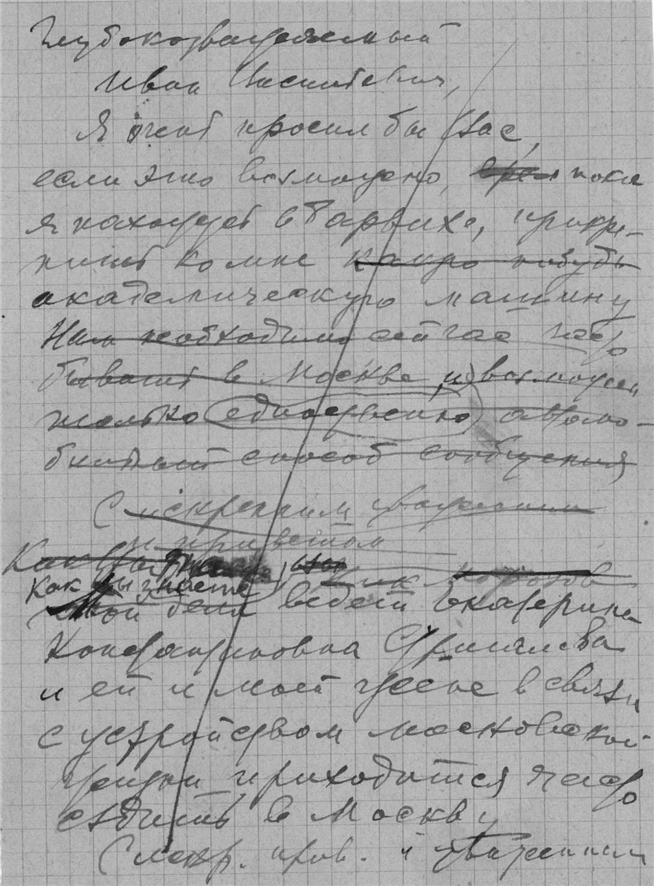 Глубокоуважаемый
Иван Васильевич,
Я очень просил бы Вас,
если это возможно, пока
я нахожусь в Барвихе, прикре-
пить ко мне какую нибудь
академическую машину
Нам необходимо сейчас часто
бывать в Москве и возможен
только единственно автомо-
бильный способ сообщения
С искренним уважением
и приветом
Как Ник Морозов
Как Вы знаете,
мои дела ведет Екатерина
Константиновна
и ей и моей в связи
с устройством московской
приходится часто
ездить в Москву
С искр. прив. и уважением